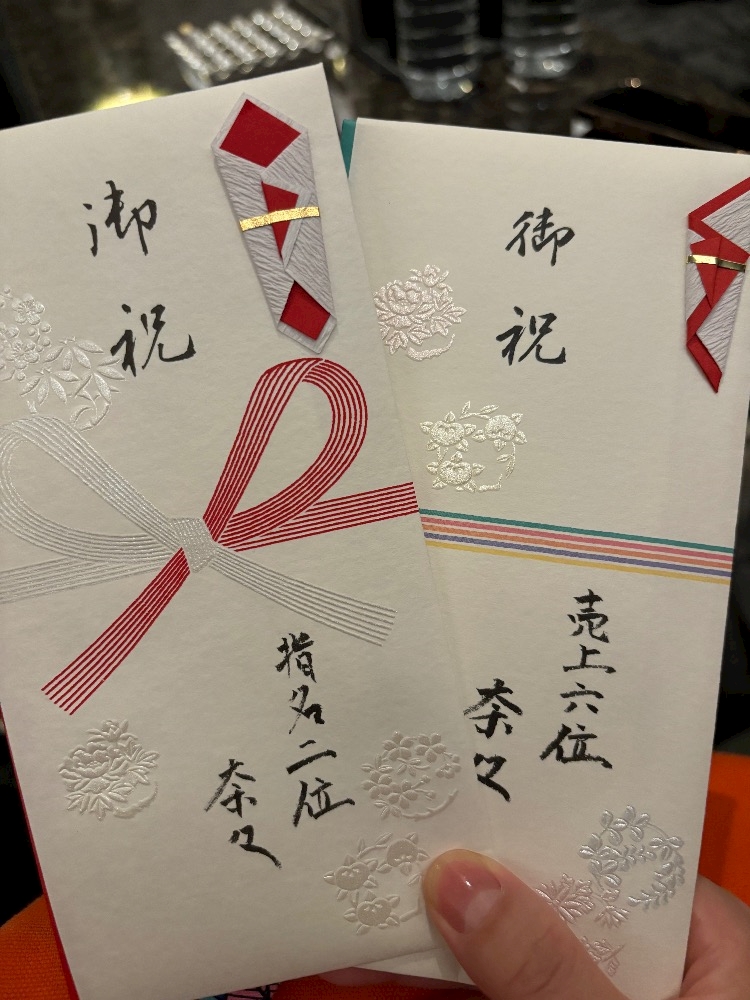 御祝
指名二位
奈々
御祝
売上六位
奈々